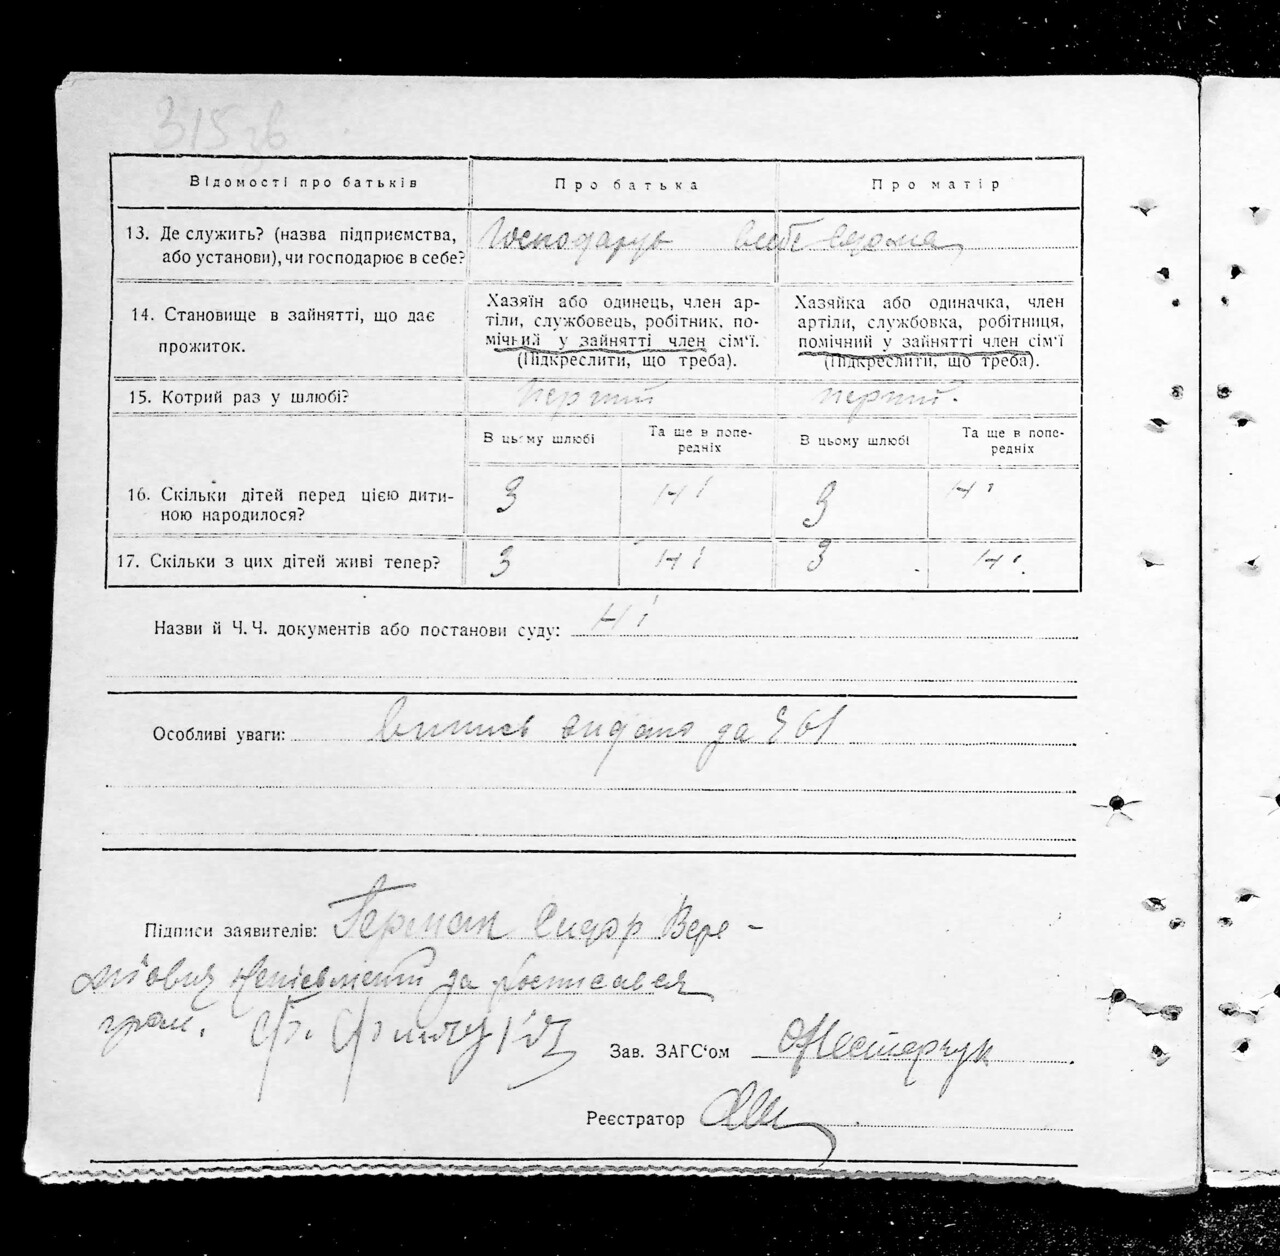 315 зв
Відомості про батьків
Про батька
Про матір
13. Де служить? (назва підприємства,
або установи), чи господарює в себе?
Господарює в себе вдома
14. Становище в зайнятті, що дає
прожиток.
Хазяїн або одинець, член ар-
тіли, службовець, робітник, по-
мічний у зайнятті член сім'ї.
(Підкреслити, що треба).
Хазяйка або одиначка, член
артіли, службовка, робітниця,
помічний у зайнятті член сім'ї
(Підкреслити, що треба).
15. Котрий раз у шлюбі?
перший
перший.
В цьому шлюбі
Та ще в попе-
редніх
В цьому шлюбі
Та ще в попе-
редніх
16. Скільки дітей перед цією дити-
ною народилося?
3
ні
3
ні
17. Скільки з цих дітей живі тепер?
3
ні
3
ні.
Назви й Ч.Ч. документів або постанови суду: ні
Особливі уваги: Випись видано за № 61
Підписи заявителів: Герман Сидор Вере-
мійович неписьменний за
гром.
Зав. ЗАГС'ом Нестерчук
Реєстратор